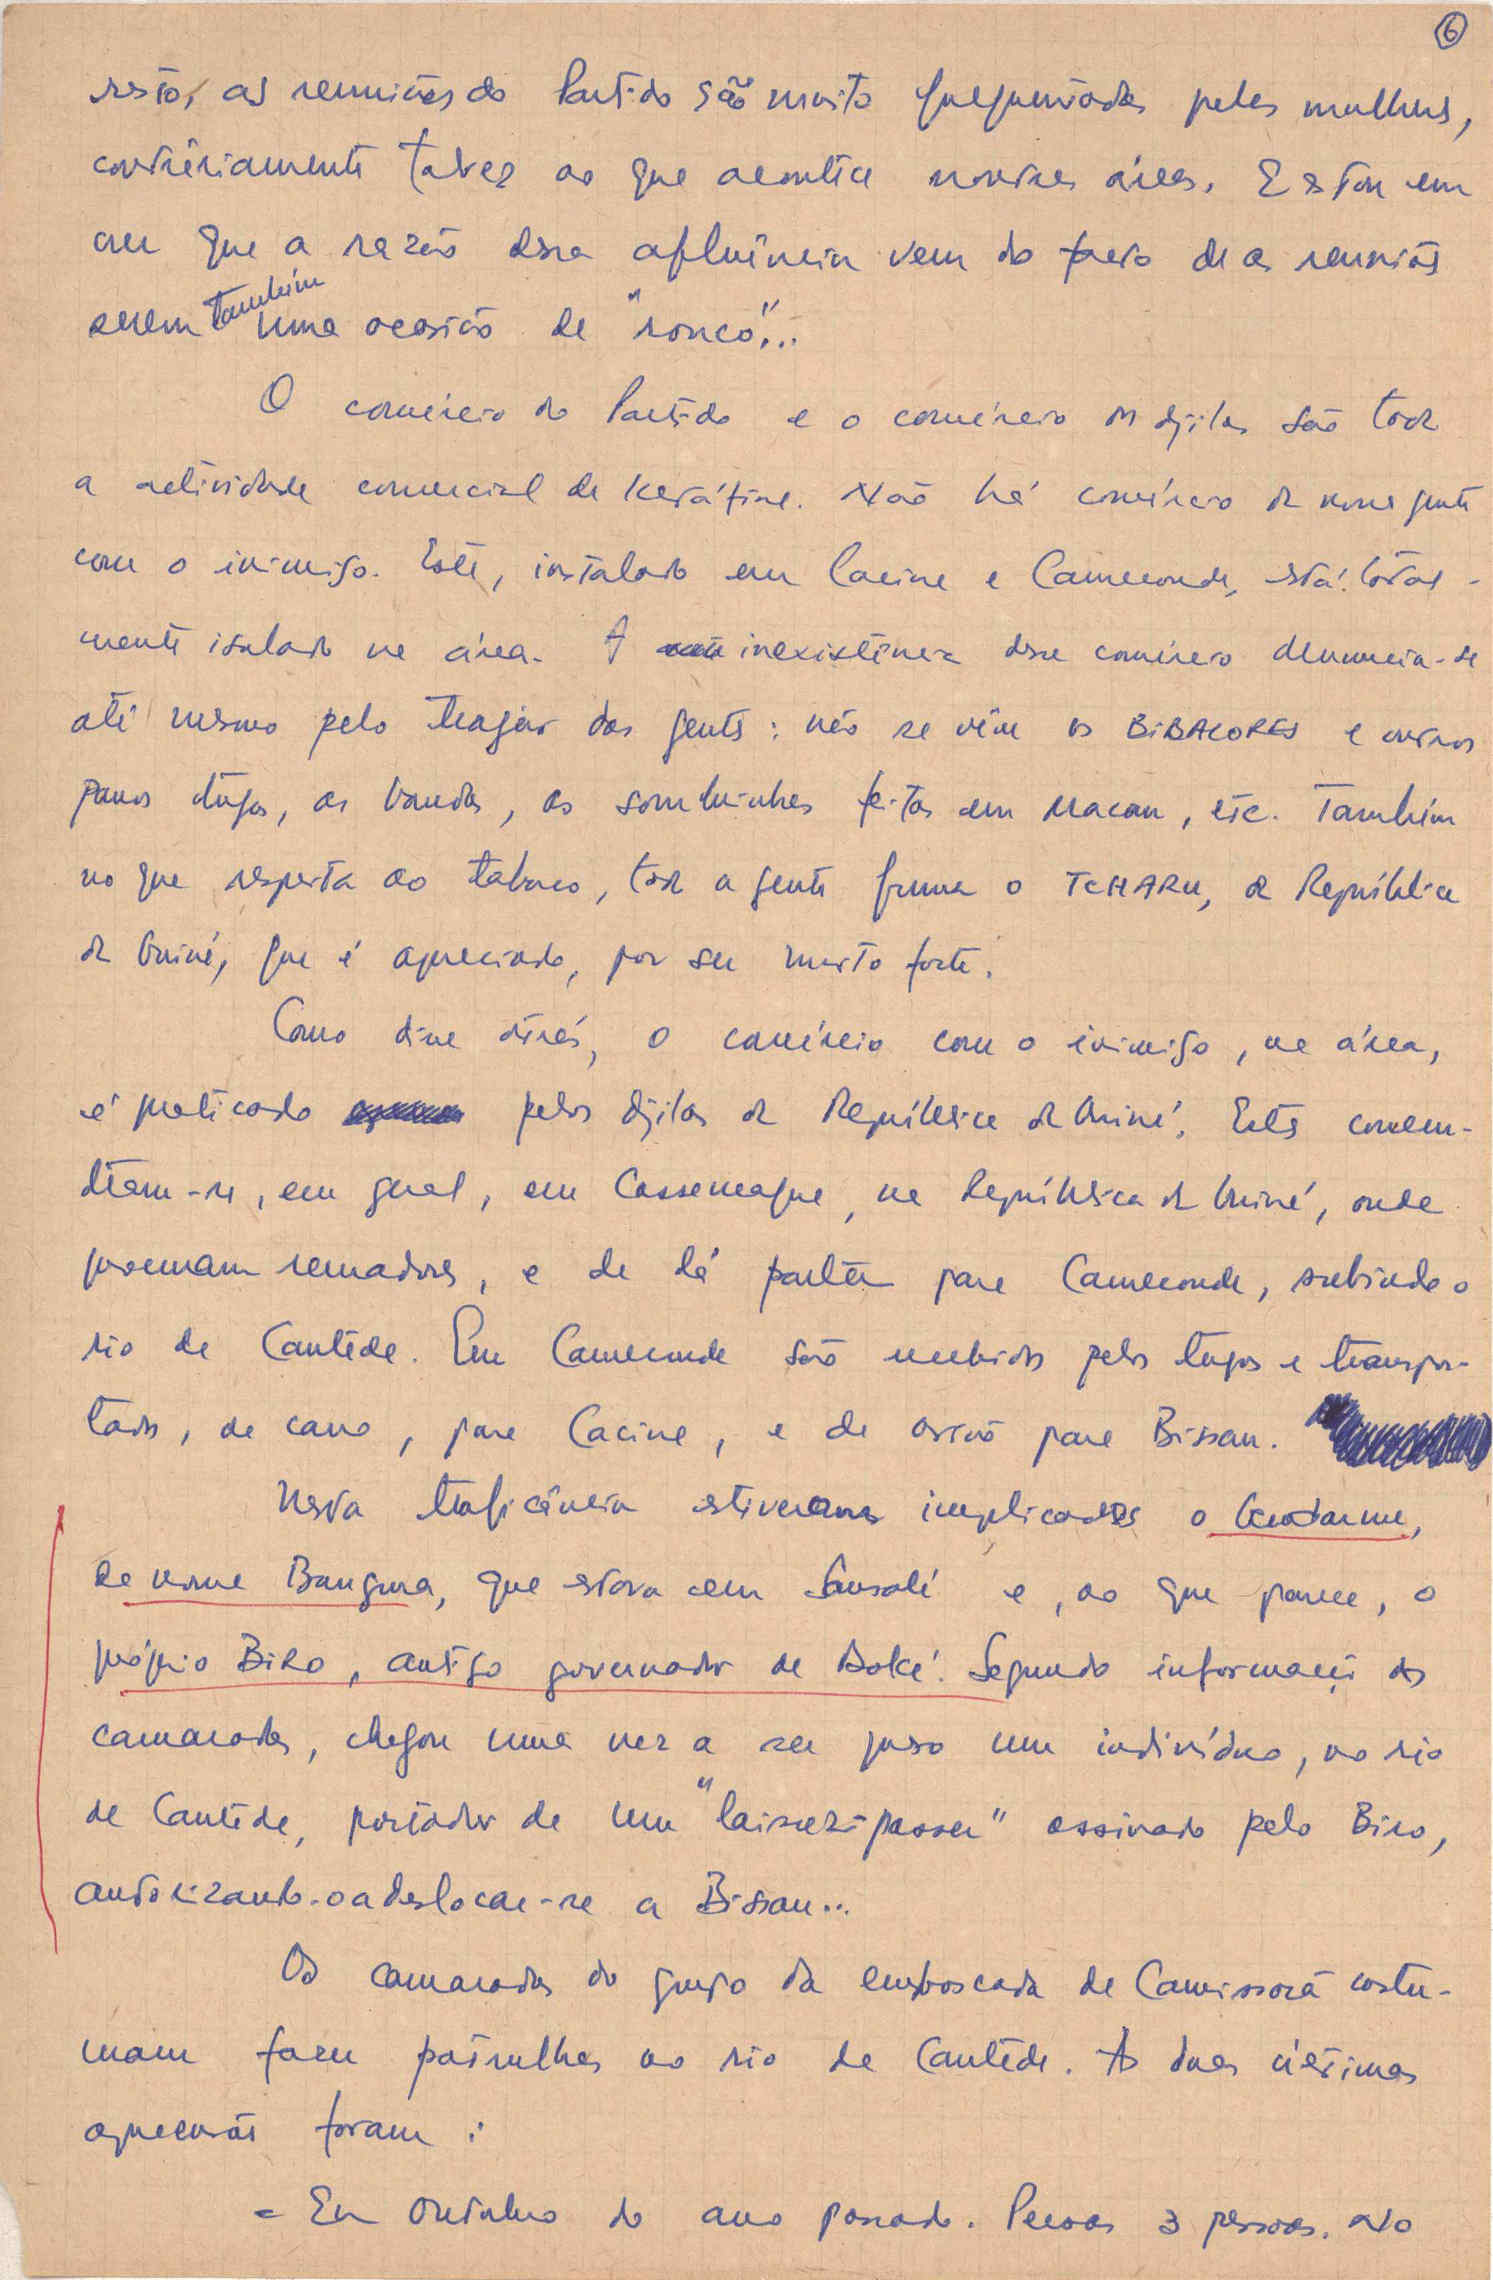 6
resto, as reuniões do Partido são muito frequentadas pelas mulheres,
contràriamente talvez ao que acontece noutras áreas. Estou em
crer que a razão dessa afluência vem do facto de as reuniões
serem também uma ocasião de "ronco"...
O comércio do Partido e o comércio dos djilas são toda
a actividade comercial de Keráfine. Não há comércio da nossa gente
com o inimigo. Este, instalado em Cacine e Cameconde, está total-
mente isolado na área. A inexistência desse comércio denuncia-se
até mesmo pelo trajar das gentes: não se vêm os BIBACORES e outros
panos tugas, as bandas, as sombrinhas feitas em Macau, etc. Também
no que respeita ao tabaco, toda a gente fuma o TCHARU, da República
da Guiné, que é apreciado, por ser muito forte.
Como disse atrás, o comércio com o inimigo, na área,
é praticado pelos djilas da República da Guiné. Estes concen-
tram-se, em geral, em Cassemaque, na República da Guiné, onde
procuram remadores, e de lá partem para Cameconde, subindo o
rio de Cantede. Em Cameconde são recebidos pelos tugas e transpor-
tados, de carro, para Cacine, e de avião para Bissau.
Nesta traficância estiveram implicados o Gendarme,
de nome Bangura, que estava em Sansalé e, ao que parece, o
próprio Biro, antigo governador de Boké. Segundo informações dos
camaradas, chegou uma vez a ser preso um indivíduo, no rio
de Cantede, portador de um "laissez-passer" assinado pelo Biro,
autorizando-o a deslocar-se a Bissau...
Os camaradas do grupo da emboscada de Camissorã costu-
mam fazer patrulhas no rio de Cantede. As duas últimas
apreensões foram:
- Em Outubro do ano passado. Presas 3 pessoas. No